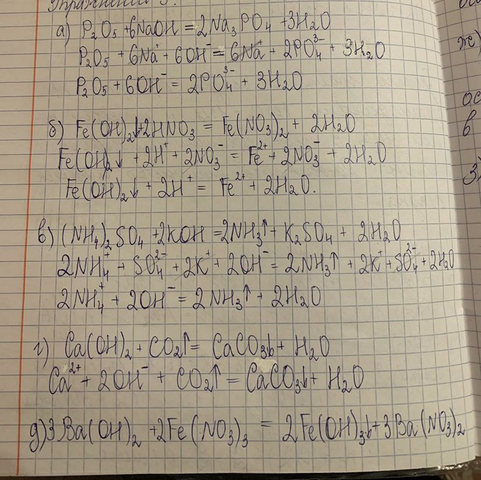 Упражнение 3.
а) P₂O₅ + 6NaOH = 2Na₃PO₄ + 3H₂O
P₂O₅ + 6Na⁺ + 6OH⁻ = 6Na⁺ + 2PO₄³⁻ + 3H₂O
P₂O₅ + 6OH⁻ = 2PO₄³⁻ + 3H₂O
б) Fe(OH)₂↓ + 2HNO₃ = Fe(NO₃)₂ + 2H₂O
Fe(OH)₂↓ + 2H⁺ + 2NO₃⁻ = Fe²⁺ + 2NO₃⁻ + 2H₂O
Fe(OH)₂↓ + 2H⁺ = Fe²⁺ + 2H₂O.
в) (NH₄)₂SO₄ + 2KOH = 2NH₃↑ + K₂SO₄ + 2H₂O
2NH₄⁺ + SO₄²⁻ + 2K⁺ + 2OH⁻ = 2NH₃↑ + 2K⁺ + SO₄²⁻ + 2H₂O
2NH₄⁺ + 2OH⁻ = 2NH₃↑ + 2H₂O
г) Ca(OH)₂ + CO₂↑ = CaCO₃↓ + H₂O
Ca²⁺ + 2OH⁻ + CO₂↑ = CaCO₃↓ + H₂O
д) 3Ba(OH)₂ + 2Fe(NO₃)₃ = 2Fe(OH)₃↓ + 3Ba(NO₃)₂
ж)
в